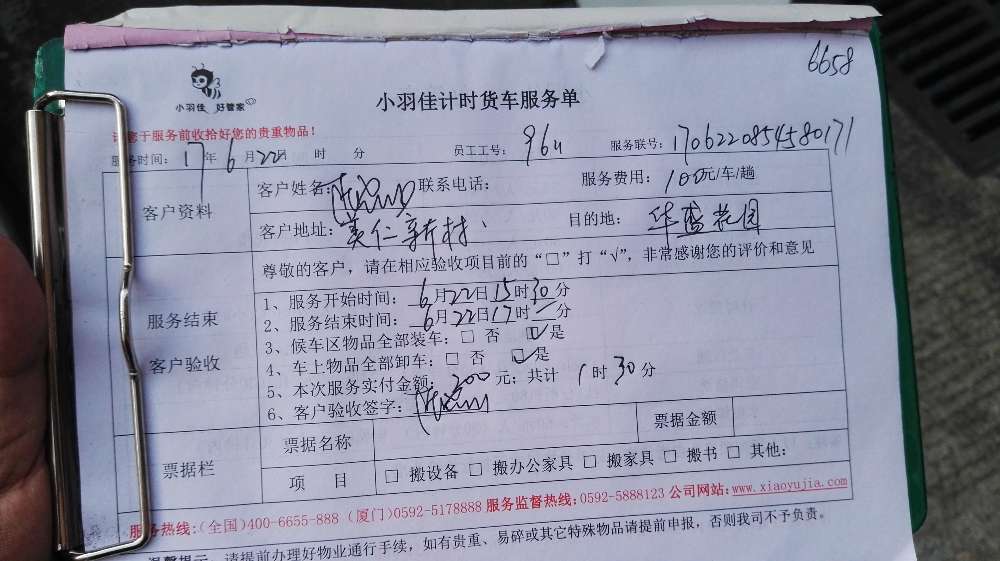 6658
小羽佳 好管家
小羽佳计时货车服务单
请您于服务前收拾好您的贵重物品！
服务时间：17年6月22日 时 分 员工工号：964 服务联号：1706220854580171
客户资料
客户姓名： 联系电话： 服务费用：100元/车/趟
客户地址：美仁新村 目的地：华盛花园
服务结束
客户验收
尊敬的客户，请在相应验收项目前的“□”打“√”，非常感谢您的评价和意见
1、服务开始时间：6月22日15时30分
2、服务结束时间：6月22日17时一分
3、候车区物品全部装车：□ 否 ☑是
4、车上物品全部卸车：□ 否 ☑是
5、本次服务实付金额：200元；共计 1时30分
6、客户验收签字：
票据栏
票据名称 票据金额
项 目 □ 搬设备 □ 搬办公家具 □ 搬家具 □ 搬书 □ 其他：
服务热线：(全国)400-6655-888 (厦门)0592-5178888 服务监督热线：0592-5888123 公司网站：www.xiaoyujia.com
温馨提示 请提前办理好物业通行手续，如有贵重、易碎或其它特殊物品请提前申报，否则我司不予负责。